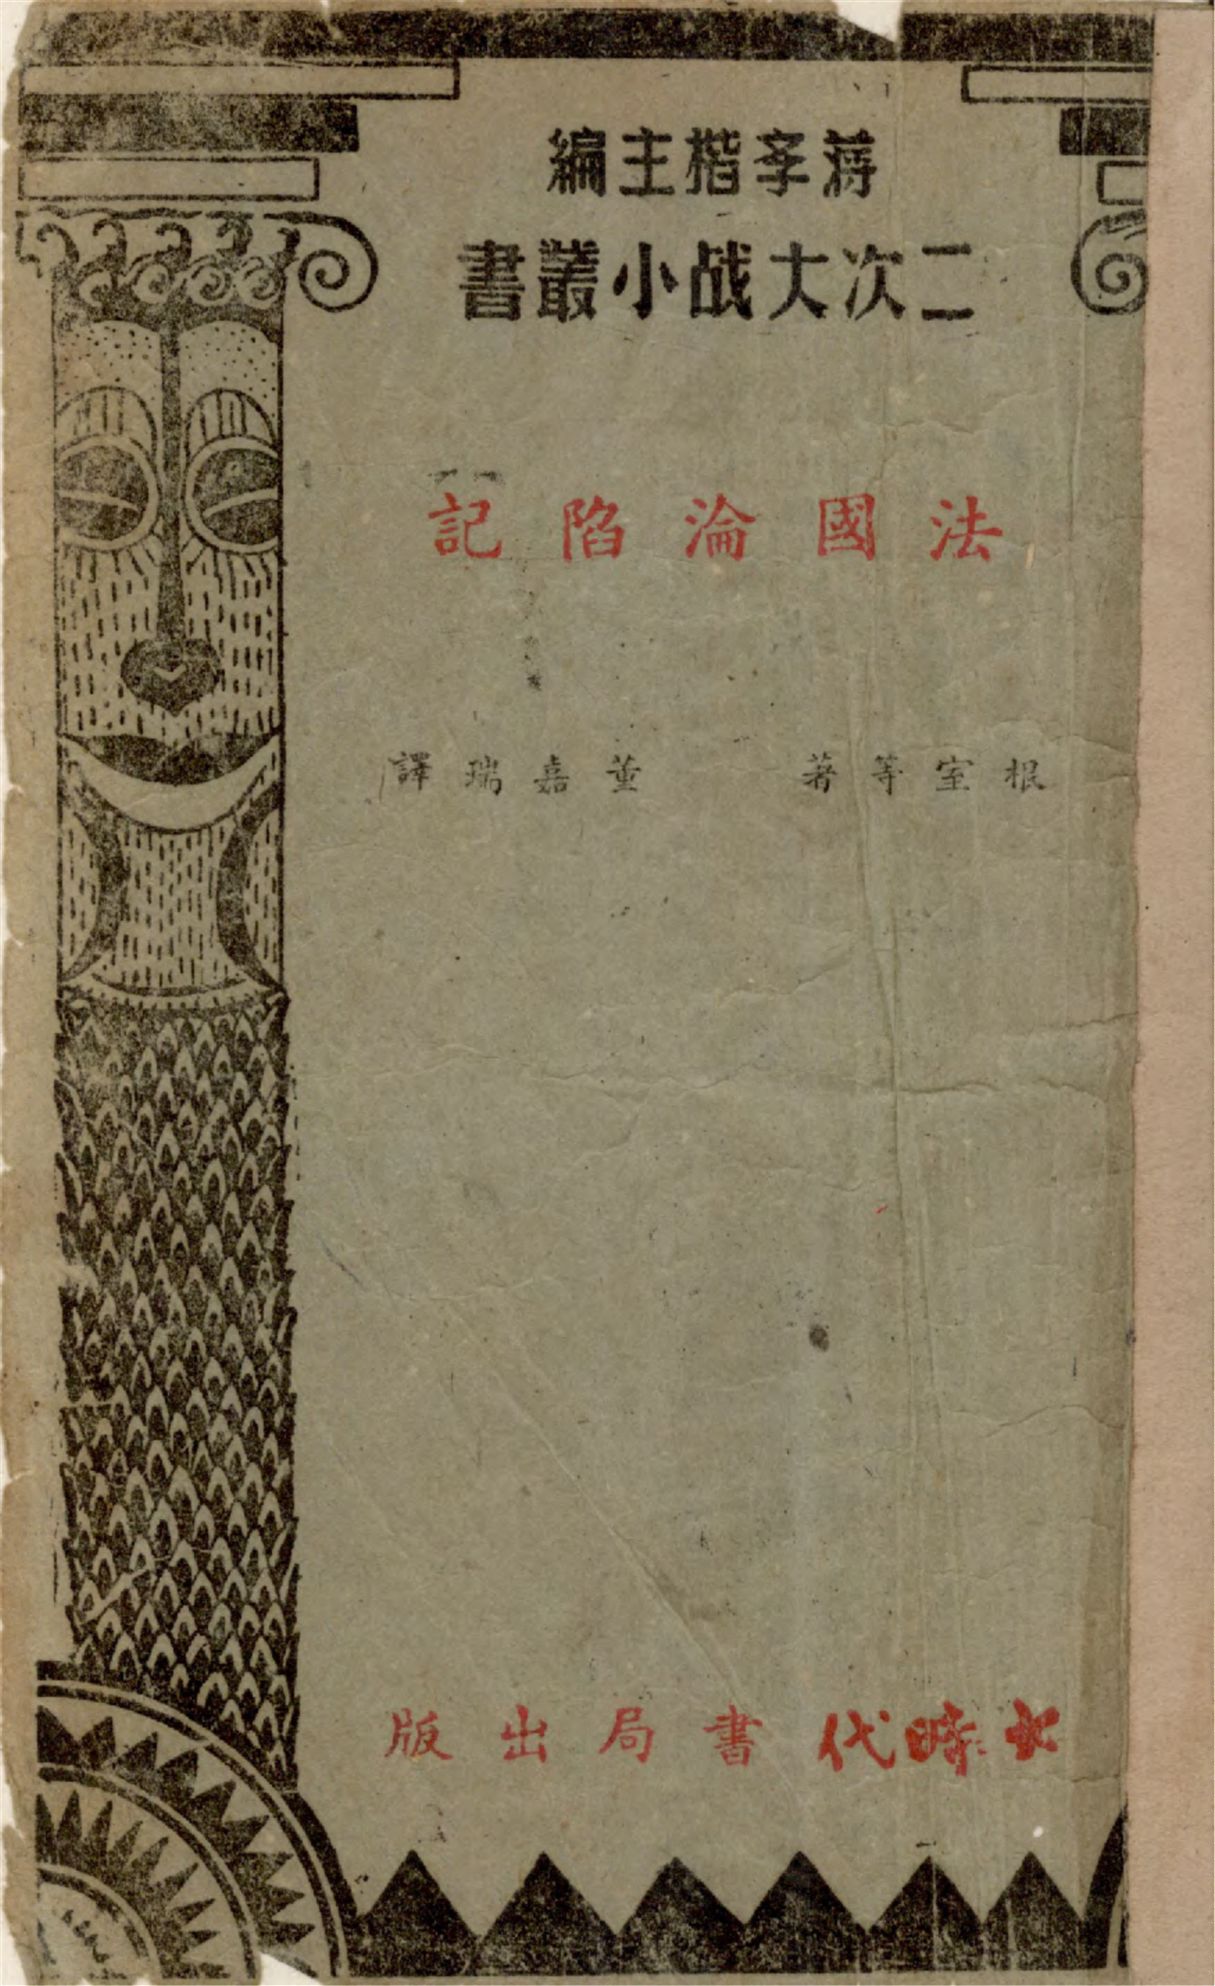 蔣孝楷主編
二次大战小叢書
法國淪陷記
根室等著 董嘉瑞譯
大時代書局出版